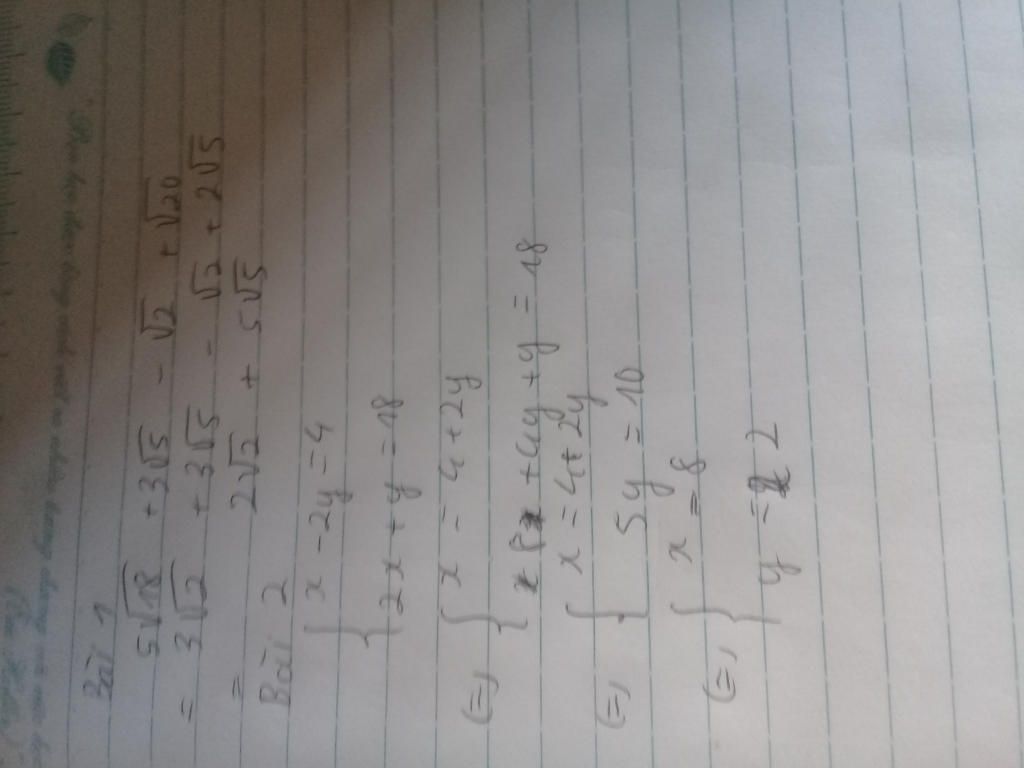 Bài 1
5√18 + 3√5 - √2 + √20
= 3√2 + 3√5 - √2 + 2√5
= 2√2 + 5√5
Bài 2
{ x - 2y = 4
{ 2x + y = 18
(=, { x = 4 + 2y
{ 8 + 4y + y = 18
(=, { x = 4 + 2y
{ 5y = 10
(=, { x = 8
{ y = 2